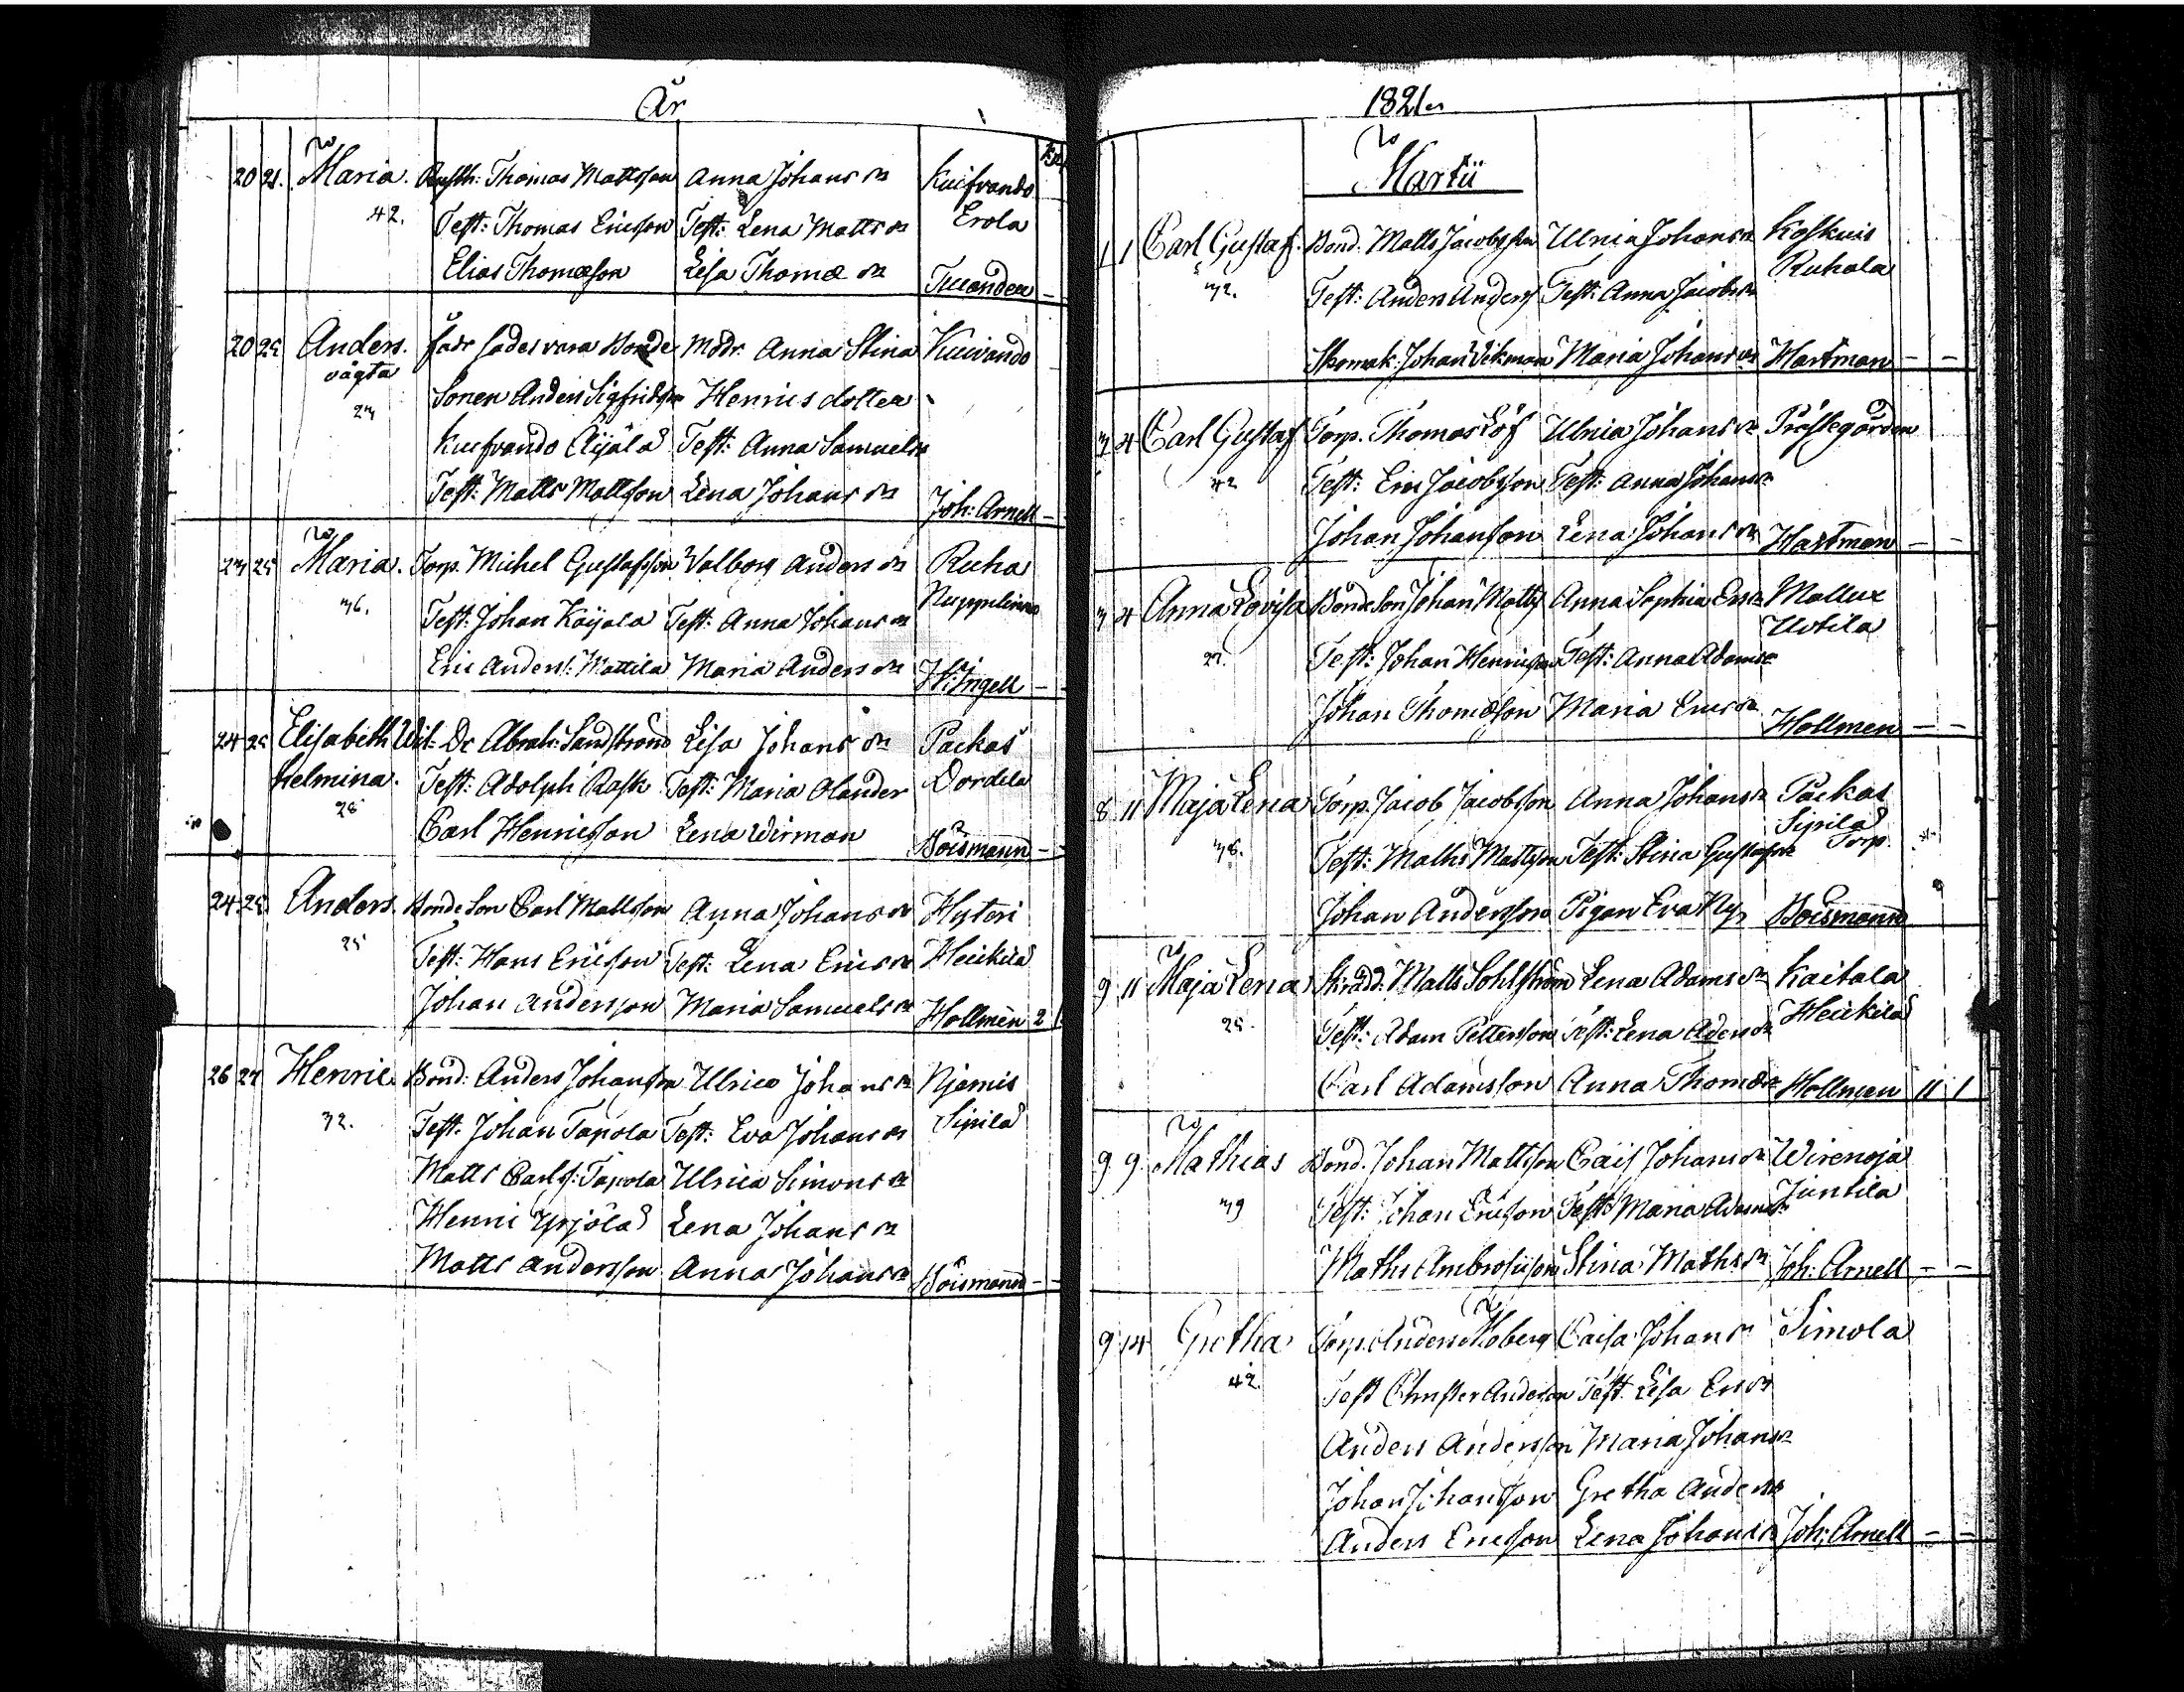 År
20 21. Maria. Rusth: Thomas Mattsson Anna Johans dr Kuifvando
42. Test: Thomas Ericsson Test: Lena Matts dr Erola
Elias Thomasson Lisa Thomæ dr
20 25 Anders. fadr sades vara Bonde Modr. Anna Stina Kuivando
oägta Sonen Anders Sigfridsson Henrics dotter
27 Kuifvando Äijälä Test: Anna Samuels dr
Test: Matts Mattsson Lena Johans dr Joh: Arnell
23 25 Maria. Torp. Michel Gustafsson Valborg Anders dr Ruha
36. Test: Johan Käijälä Test: Anna Johans dr
Eric Anders: Mattila Maria Anders dr
24 25 Elisabeth Wil- Dr Abrah: Sandström Lisa Johans dr Packas
helmina. Test: Adolph Rask Test: Maria Olander Dordila
28 Carl Henricsson Lena Wirman Boismann
24 25 Anders. Bonde Son Carl Mattsson Anna Johans dr Hyteri
25 Test: Hans Ericsson Test: Lena Erics dr Heickilä
Johan Andersson Maria Samuels dr Hollmén 2
26 27 Henric Bond: Anders Johansson Ulrica Johans dr Njemis
32. Test: Johan Tapola Test: Eva Johans dr Sipilä
Matts Carls: Tapola Ulrica Simons dr
Henric Yrjölä Lena Johans dr
Matts Andersson Anna Johans dr Boismann
1821.
Martii
1 1 Carl Gustaf. Bond. Matts Jacobsson Ulrica Johans dr Koskuis
32. Test: Anders Anders Test: Anna Jacobs dr Ruhala
Skomak: Johan Wikman Maria Johans dr Hartman
3 4 Carl Gustaf Torp. Thomas Löf Ulrica Johans dr Prästegården
42 Test: Eric Jacobsson Test: Anna Johans dr
Johan Johansson Lena Johans dr Hartman
3 4 Anna Lovisa Bonde Son Johan Matts Anna Sophia Ers dr Mallux
27. Test: Johan Henricsson Test: Anna Adams dr Uotila
Johan Thomasson Maria Erics dr Hollmen
8 11 Maja Lena Torp. Jacob Jacobsson Anna Johans dr Packas
38. Test: Maths Mattsson Test: Stina Gustafs dr Sipilä Torp.
Johan Andersson Pigan Eva Boismann
9 11 Maja Lena Skrädd. Matts Sohlström Lena Adams dr Kaitala
25. Test: Adam Pettersson Test: Lena Anders dr Heickilä
Carl Adamsson Anna Thomæ dr Hollmen 11 1
9 9 Mathias Bond. Johan Mattsson Cais Johans dr Wirenoja
39 Test: Johan Ericsson Test: Maria Adams dr Juntila
Maths Ambrosiisson Stina Maths dr Joh: Arnell
9 14 Gretha Torp. Anders Moberg Caisa Johans dr Simola
42. Test Christer Andersson Test: Lisa Ers dr
Anders Andersson Maria Johans dr
Johan Johansson Gretha Anders dr
Anders Ericsson Lena Johans dr Joh: Arnell